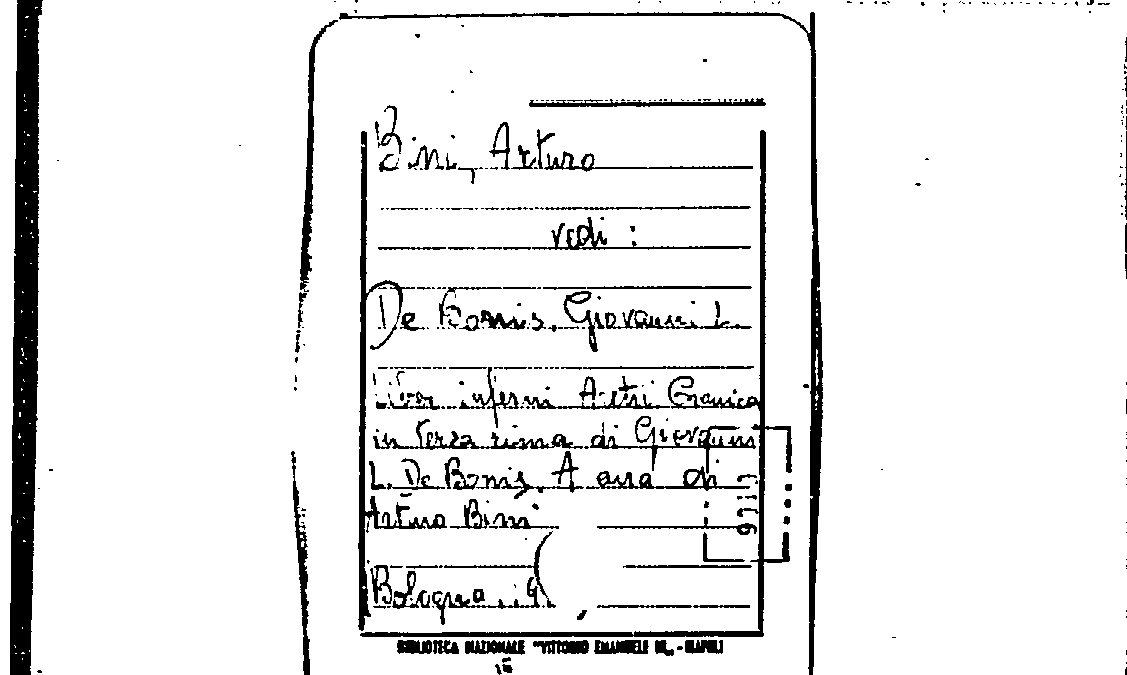 Bini, Arturo
vedi :
De Bonis, Giovanni L.
Liber inferni Aetri Cronica
in terza rima di Giovanni
L. De Bonis. A cura di
Arturo Bini
Bologna
BIBLIOTECA NAZIONALE "VITTORIO EMANUELE III„ - NAPOLI